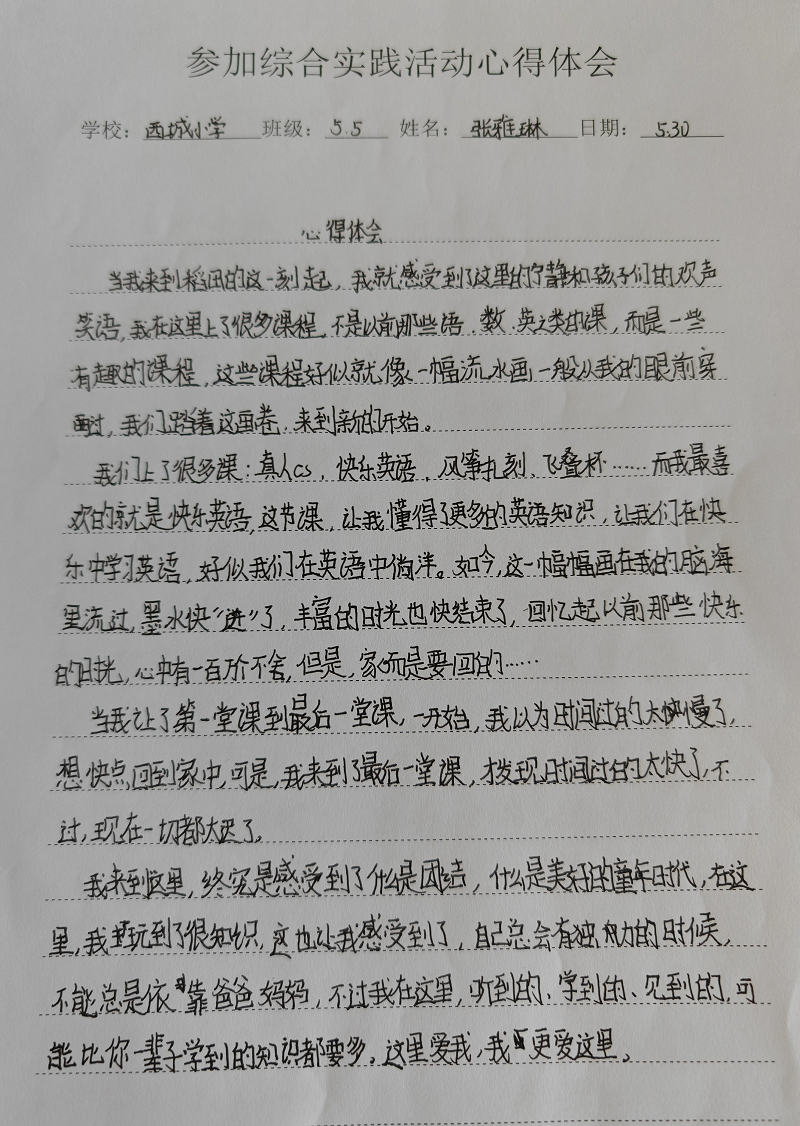 参加综合实践活动心得体会
学校：西城小学 班级：5.5 姓名：张雅琳 日期：5.30
心得体会
当我来到稻田的这一刻起，我就感受到了这里的宁静和孩子们的欢声
笑语，我在这里上了很多课程，不是以前那些语、数、英之类的课，而是一些
有趣的课程，这些课程好似就像一幅流水画一般从我的眼前穿
过，我们踏着这画卷，来到新的开始。
我们上了很多课：真人CS，快乐英语，风筝扎刻、飞叠杯……而我最喜
欢的就是快乐英语，这节课，让我懂得了更多的英语知识，让我们在快
乐中学习英语，好似我们在英语中徜洋。如今，这一幅幅画在我的脑海
里流过，墨水快“进”了，丰富的时光也快结束了，回忆起以前那些快乐
的时光，心中有一百万个不舍，但是，家而是要回的……
当我让了第一堂课到最后一堂课，一开始，我以为时间过的太快慢了，
想快点回到家中，可是，我来到了最后一堂课，才发现时间过的太快了，不
过，现在一切都太迟了。
我来到这里，终究是感受到了什么是团结，什么是美好的童年时代，在这
里，我玩到了很知识，这也让我感受到了，自己总会有独力的时候，
不能总是依靠爸爸妈妈，不过我在这里，听到的、学到的、见到的，可
能比你一辈子学到的知识都要多。这里爱我，我更爱这里。